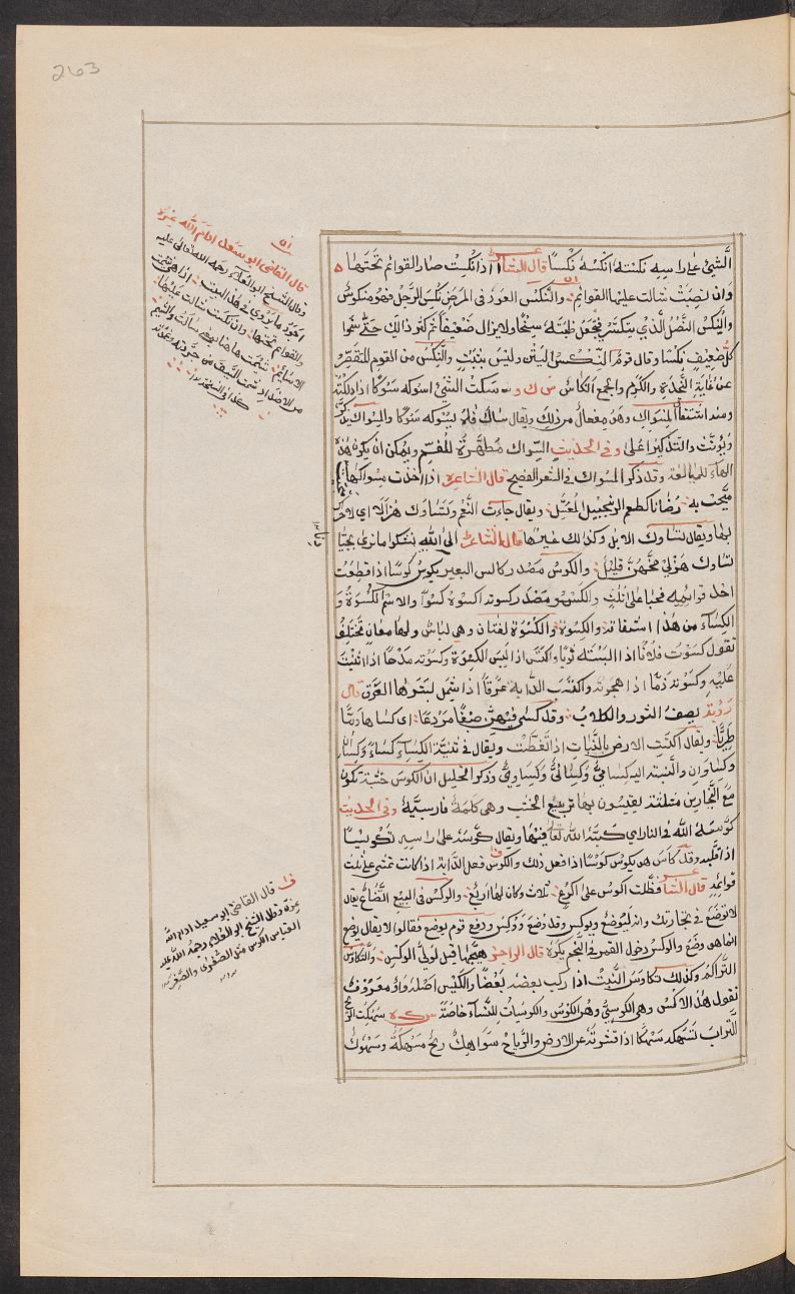 263
الشيئ على راسه نكسته انكسه نكسًا قال الشاعر اذا نكست صار القوائم تحتها
وان نصبت شالت عليها القوائم والنكس العود فى المرض نكس الرجل فهو منكوس
والنكس النصل الذي ينكسر فتجعل ظبته سنخا ولا يزال ضعيفا ثم كثر ذالك حتى سموا
كل ضعيف نكسا وقال قوم النكس اليتن وليس بثبت والنكس من القوم المقصر
عن غاية النجدة والكرم والجمع انكاس س ك و سكت الشيئ اسوكه سوكا اذا دلكته
ومنه اشتقاق المسواك وهو مفعال من ذلك ويقال ساك فاه يسوكه سوكا والسواك يذكر
ويؤنث والتذكير اعلى وفى الحديث السواك مطهرة للفم ويمكن ان يكون هذه
الهاء للمبالغة وقد ذكروا المسواك فى الشعر الفصيح قال الشاعر اذا اخذت مسواكها
ميحت به رضابا كطعم الزنجبيل المعسل ويقال جاءت النعم وتساوك هزالا اي لا حراك
بها ويقال تساوك الابل وكذلك غيرها قال الشاعر الى الله نشكو ما نرى بجيادنا
تساوك هزلى مخهن قليل والكوس مصدر كاس البعير يكوس كوسا اذا قطعت
احد قوائمه فحبا على ثلث والكسو مصدر كسوته اكسوه كسوا والاسم الكسوة و
الكساء من هذا اشتقاقه والكسوة والكسوة لغتان وهى لباس ولها معان تختلف
تقول كسوت فلانا اذا البسته ثوبا واكتسى اذا لبس الكسوة وكسوته مدحا اذا اثنيت
عليه وكسوته ذما اذا هجوته واكتست الدابة عرقا اذا شمل بشرها العرق قال
رؤبة يصف الثور والكلاب وقد كسى فيهن صبغا مردغا اى كساها دما
طريا ويقال اكتست الارض بالنبات اذا تغطت ويقال فى تثنية الكساء كساءان
وكساوان والنسبة اليه كسائى وكساوى وذكر الخليل ان الكوس خشبة تكون
مع النجارين مثلثة يقيسون بها تربيع الخشب وهى كلمة فارسية وفى الحديث
كوسه الله فى النار اى كبه الله فيها ويقال كوسته على راسه تكويسا
اذا قلبته وقد كاس هو يكوس كوسا اذا فعل ذلك والكوس فعل الدابة اذا كانت تمشى على ثلث
قوائم قال الشاعر فظلت تكوس على اكرع ثلاث وكان لها اربع والوكس فى البيع اتضاع يقال
لا توضع فى تجارتك وانه ليوضع ويوكس وقد وضع ووكس ودفع قوم يوضع وقالوا لا يقال يوضع
انما هو وضع والوكس دخول القمر فى النجم يكره قال الراجز هيجها قبل ليالى الوكس والتكاوس
التراكم وكذلك تكاوس النبت اذا ركب بعضه بعضا والكيس اصله واو معروف
تقول هذا الاكيس وهى الكوسى وهن الكوس والكوسيات للنساء خاصة س ك ه سهكت الريح
التراب تسهكه سهكا اذا قشرته عن الارض والرياح سواهك ريح مسهكة وسهوك
قال القاضى ابو سعيد ادام الله عزه
وقال الشيخ ابو العلاء رحمه الله تعالى عليه
ف قال القاضى ابو سعيد ادام الله
عزه وقال الشيخ ابو العلاء رحمه الله عليه